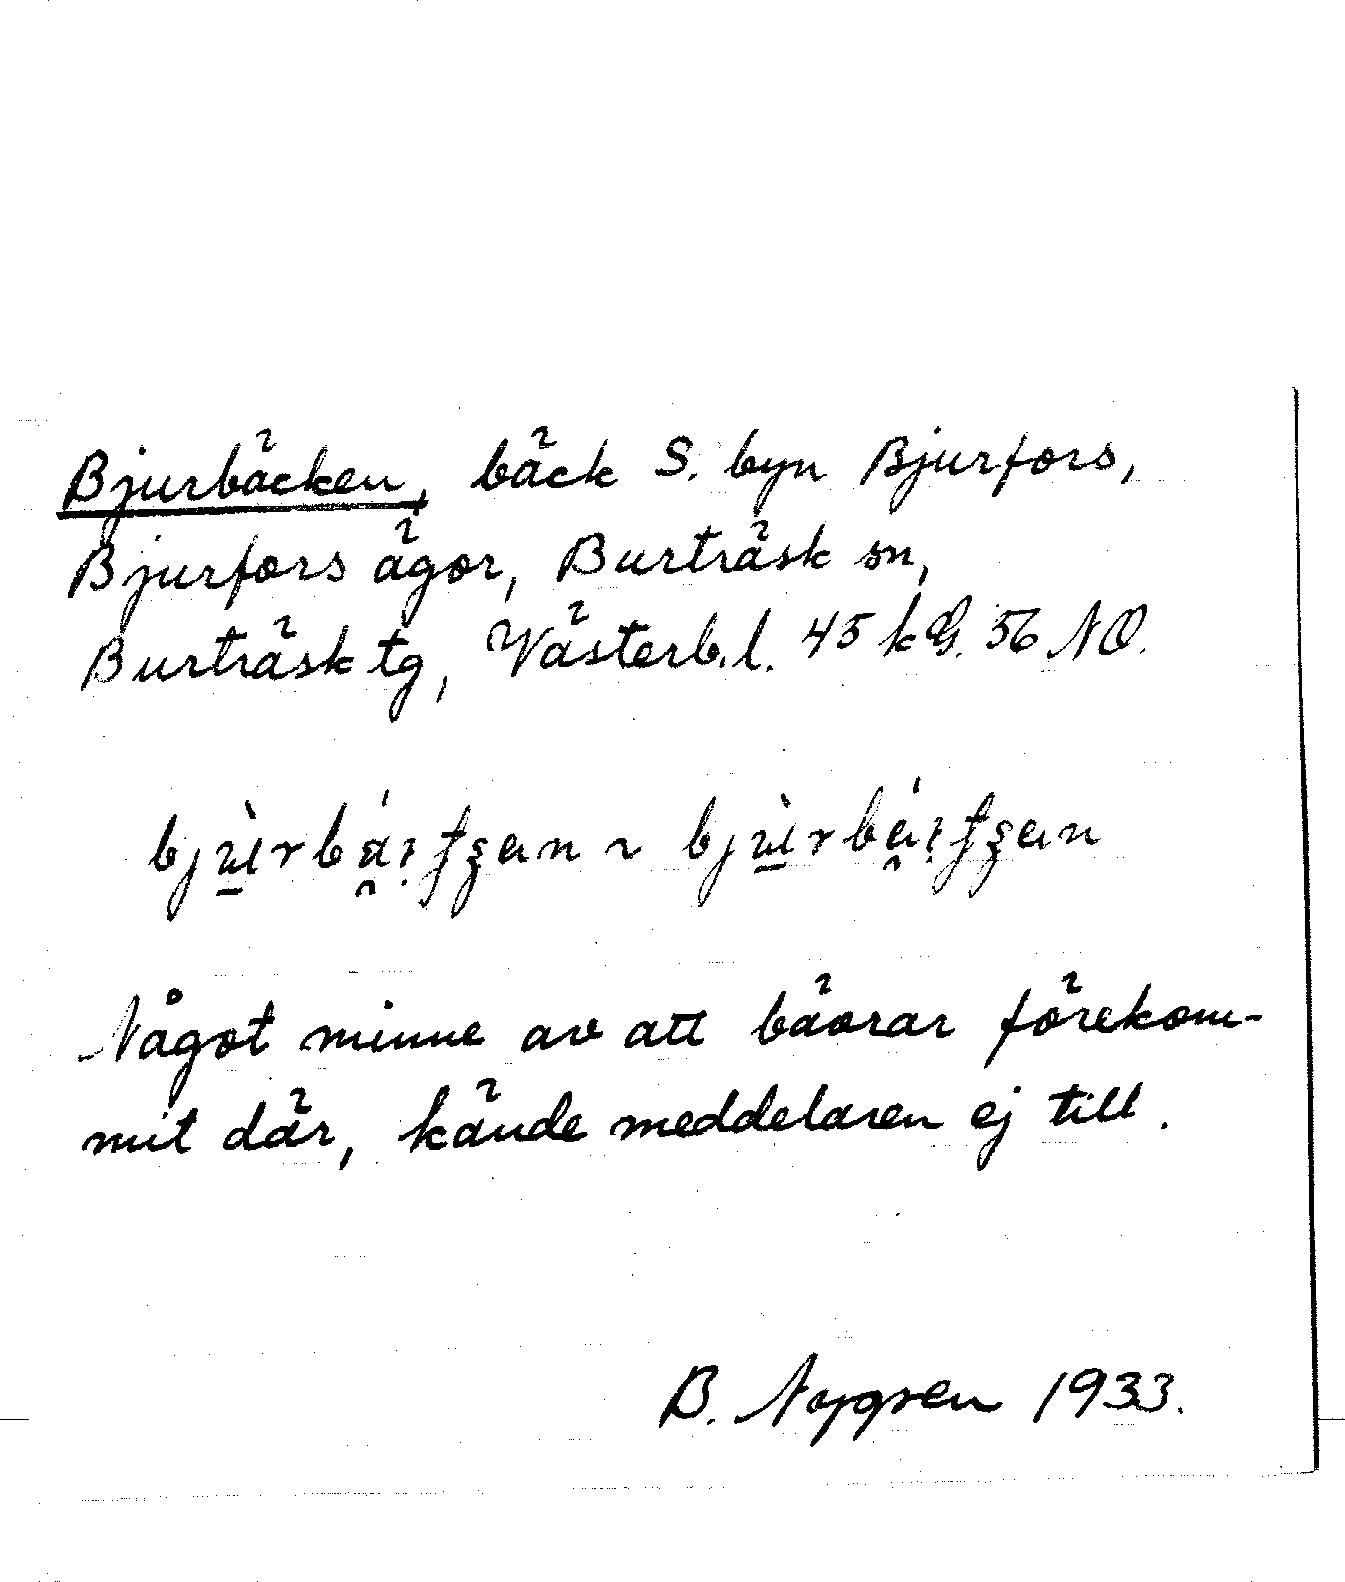 Bjurbäcken, bäck S. byn Bjurfors,
Bjurfors ägor, Burträsk sn,
Burträsk tg, Västerb.l. 45 kG. 56 NO.
Något minne av att bävrar förekom-
mit där, kände meddelaren ej till.
B. Nygren 1933.